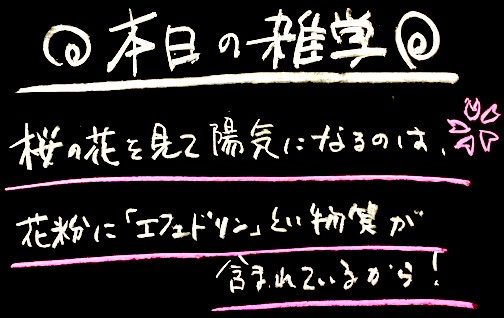 本日の雑学
桜の花を見て陽気になるのは、
花粉に「エフェドリン」という物質が
含まれているから!